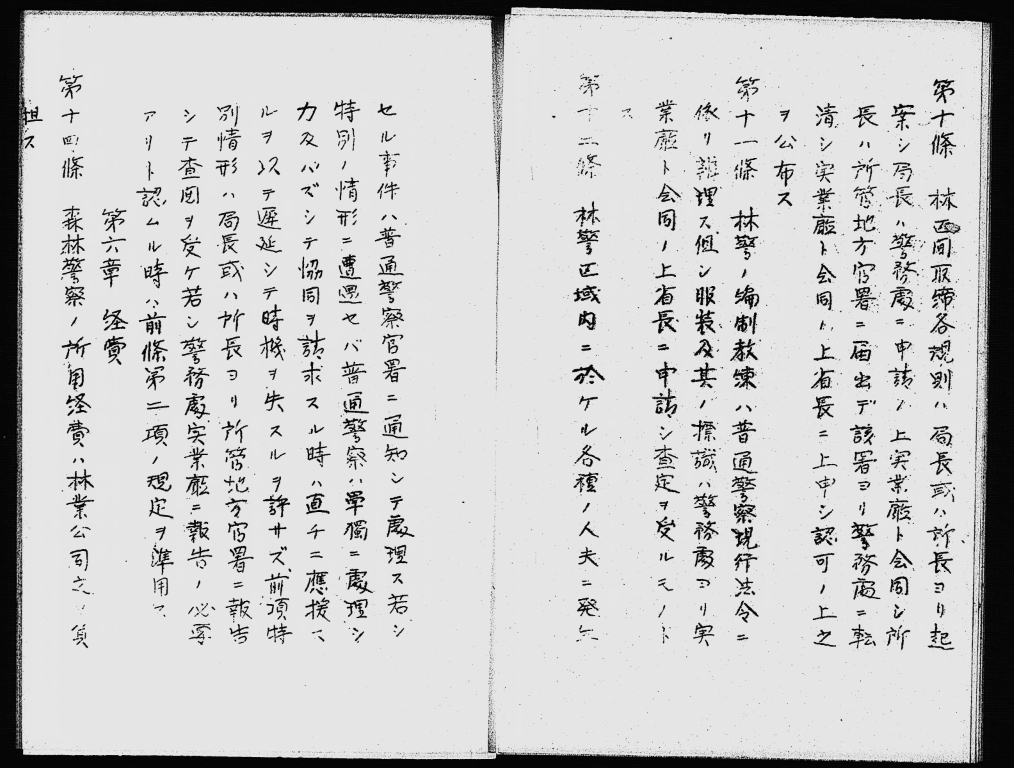 第十條 林区間取締各規則ハ局長或ハ所長ヨリ起
案シ局長ハ警務處ニ申請ノ上実業廳ト会同シ所
長ハ所管地方官署ニ届出デ該署ヨリ警務處ニ転
請シ実業廳ト会同ノ上省長ニ上申シ認可ノ上之
ヲ公布ス
第十一條 林警ノ編制教練ハ普通警察現行法令ニ
依リ辦理ス但シ服装及其ノ標識ハ警務處ヨリ実
業廳ト会同ノ上省長ニ申請シ査定ヲ受ルモノト
ス
第十二條 林警区域内ニ於ケル各種ノ人夫ニ発生
セル事件ハ普通警察官署ニ通知シテ處理ス若シ
特別ノ情形ニ遭遇セバ普通警察ハ單獨ニ處理シ
力及バズシテ協同ヲ請求スル時ハ直チニ應援ス
ルヲ以テ遅延シテ時機ヲ失スルヲ許サズ前項特
別情形ハ局長或ハ所長ヨリ所管地方官署ニ報告
シテ査図ヲ受ケ若シ警務處実業廳ニ報告ノ必要
アリト認ムル時ハ前條第二項ノ規定ヲ準用ス
第六章 経費
第十四條 森林警察ノ所用経費ハ林業公司之ヲ負
担ス